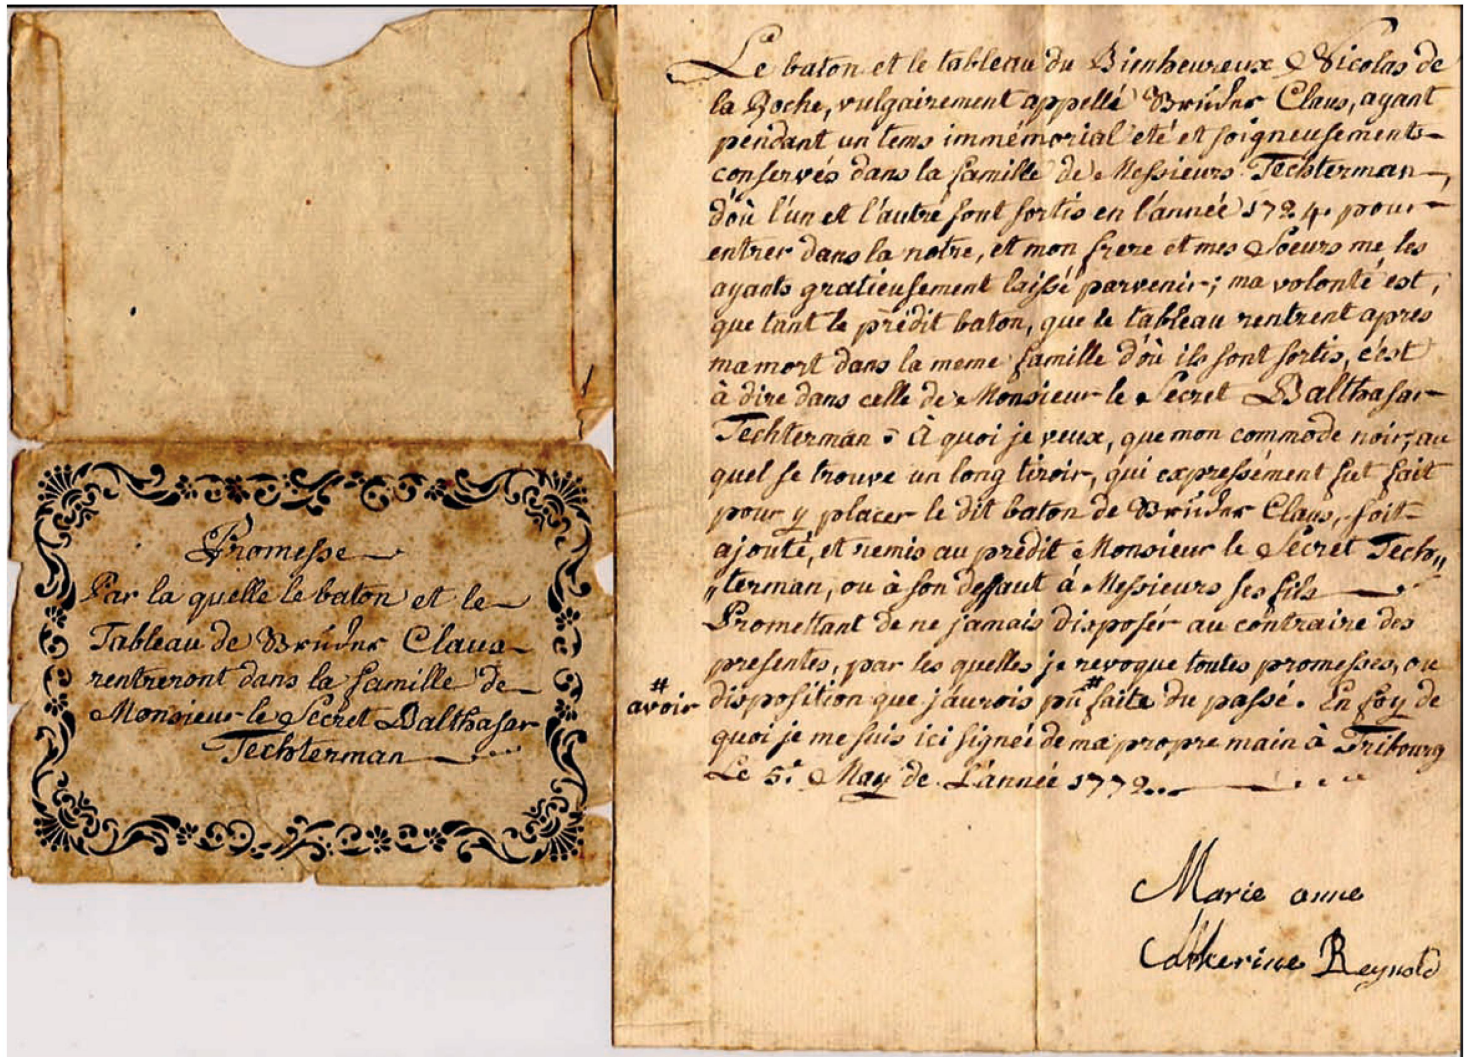 Promesse
Par la quelle le baton et le
Tableau de Brúder Claus
rentreront dans la famille de
Monsieur le Secret Balthasar
Techterman
Le baton et le tableau du Bienheureux Nicolas de
la Roche, vulgairement appellé Brúder Claus, ayant
pendant un tems immémorial eté et soigneusements
conservés dans la famille de Messieurs Techterman,
d'où l'un et l'autre sont sortis en l'année 1724. pour
entrer dans la notre, et mon frere et mes Soeurs me les
ayants gratieusement laissé parvenir; ma volonté est,
que tant le prédit baton, que le tableau rentrent apres
ma mort dans la meme famille d'où ils sont sortis, c'est
à dire dans celle de Monsieur le Secret Balthasar
Techterman : À quoi je veux, que mon commode noir, au
quel se trouve un long tiroir, qui expressément fut fait
pour y placer le dit baton de Brúder Claus, soit
ajouté, et remis au predit Monsieur le Secret Tech„
„terman, ou à son deffaut à Messieurs ses fils
Promettant de ne jamais disposér au contraire des
presentes, par les quelles je revoque toutes promesses, ou
# avoir
disposition que j'aurois pû # faite du passé. En foy de
quoi je me suis ici signeé de ma propre main à Fribourg
Le 5.e May de L'année 1772.
Marie anne
Catherine Reynold